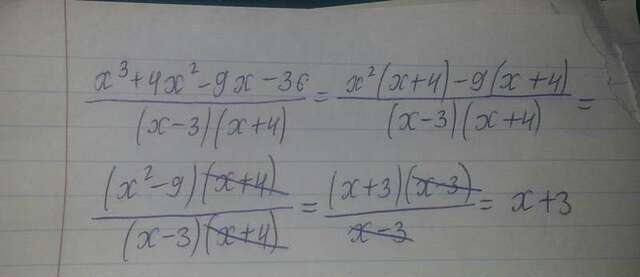 (x³+4x²-9x-36)/((x-3)(x+4)) = (x²(x+4)-9(x+4))/((x-3)(x+4)) =
((x²-9)(x+4))/((x-3)(x+4)) = ((x+3)(x-3))/(x-3) = x+3